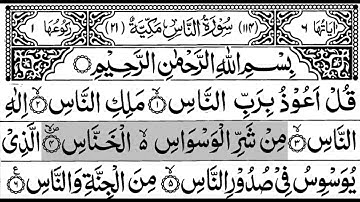 اٰيَاتُهَا ٦ (١١٤) سُوْرَةُ النَّاسِ مَكِّيَّةٌ (٢١) رُكُوْعُهَا ١
بِسْمِ اللّٰهِ الرَّحْمٰنِ الرَّحِيْمِ
قُلْ اَعُوْذُ بِرَبِّ النَّاسِ ۙ‏﴿۱﴾ مَلِكِ النَّاسِ ۙ‏﴿۲﴾ اِلٰهِ
النَّاسِ ۙ‏﴿۳﴾ مِنْ شَرِّ الْوَسْوَاسِ ۙ۬ الْخَنَّاسِ ۪ۙ‏﴿۴﴾ الَّذِىْ
يُوَسْوِسُ فِىْ صُدُوْرِ النَّاسِ ۙ‏﴿۵﴾ مِنَ الْجِنَّةِ وَالنَّاسِ ﴿۶﴾